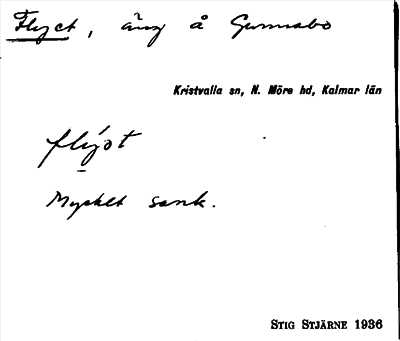 Flyet, äng å Gunnabo
Kristvalla sn, N. Möre hd, Kalmar län
flýǝt
Mycket sank.
STIG STJÄRNE 1936